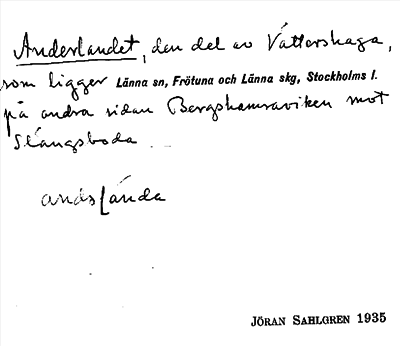 Anderlandet, den del av Vättershaga,
som ligger Länna sn, Frötuna och Länna skg, Stockholms l.
på andra sidan Bergshamraviken mot
Slängsboda
JÖRAN SAHLGREN 1935